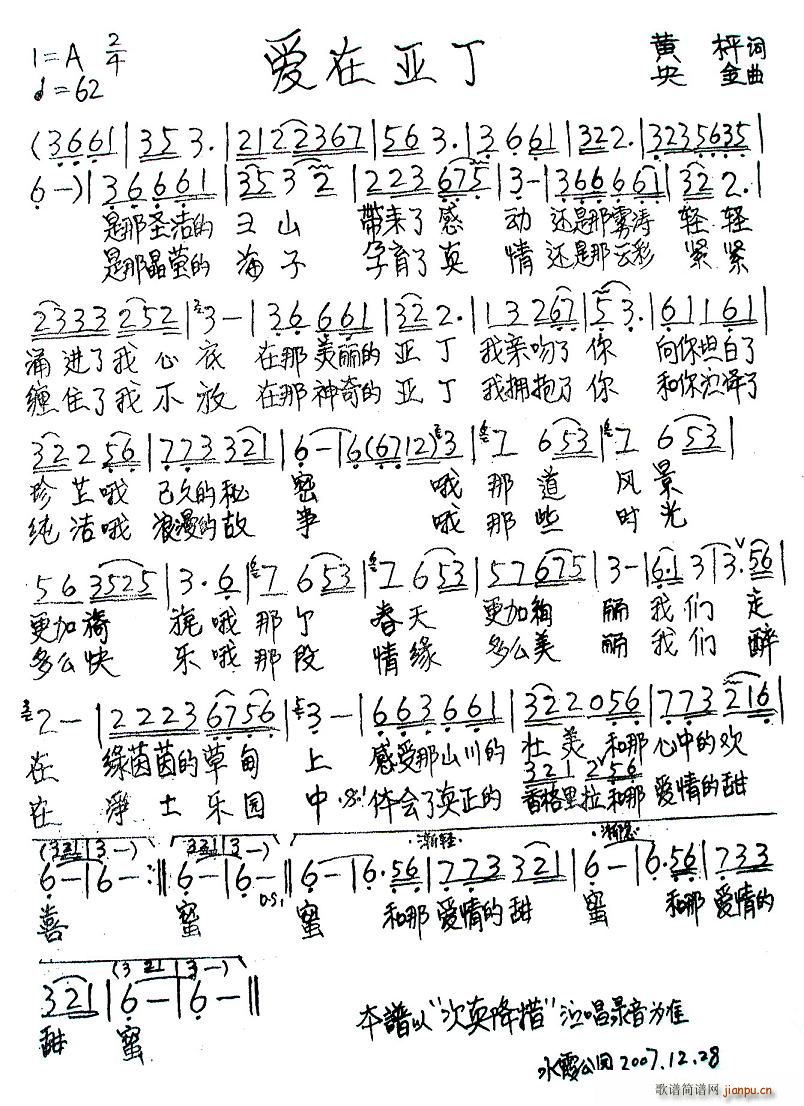 1=A 2/4
♩=62
爱在亚丁
黄 枰 词
央 金 曲
(3661|353.|2122367|563.|3661|322.|3235635|
6-)|36661|35 3 2|223675|3-|366661|322.|
是那圣洁的 山 带来了感 动 还是那雾涛 轻 轻
是那晶莹的 海 子 孕育了真 情 还是那云彩 紧 紧
2333252|3-|36661|322.|13267|53.|611 61|
涌进了我心底 在那美丽的亚丁 我亲吻了你 向你坦白了
缠住了我不放 在那神奇的亚丁 我拥抱了你 和你演译了
322 56|773 321|6-|6(6712)3|7 653|7 653|
珍芷哦 已久的秘 密 哦 那 道 风 景
纯洁哦 浪漫的故 事 哦 那 些 时 光
56 3525|3.6|7 653|7 653|57 675|3-|6.1 3|3.56|
更加旖 旎 哦 那 个 春 天 更加绚 丽 我 们 走
多么快 乐 哦 那 段 情 缘 多么美 丽 我 们 醉
2-|2223 6756|3-|663661|322056|773 216|
在 绿茵茵的草甸 上 感受那山川的 壮 美 和那 心中的欢
321 2 56
在 净 土 乐 园 中 体会了真正的 香格里拉和那 爱情的甜
(321|3-) (321|3-) 渐轻 渐轻
6-|6-:|| 6-|6-|| 6-|6.56|773 321|6-|6.56|733
D.S.
喜 蜜 蜜 和那 爱情的甜 蜜 和那 爱情的
(3 21|3-)
321|6-|6-||
甜 蜜
本谱以“次真降措”演唱录音为准
水霞公园2007.12.28
歌谱简谱网
jianpu.cn